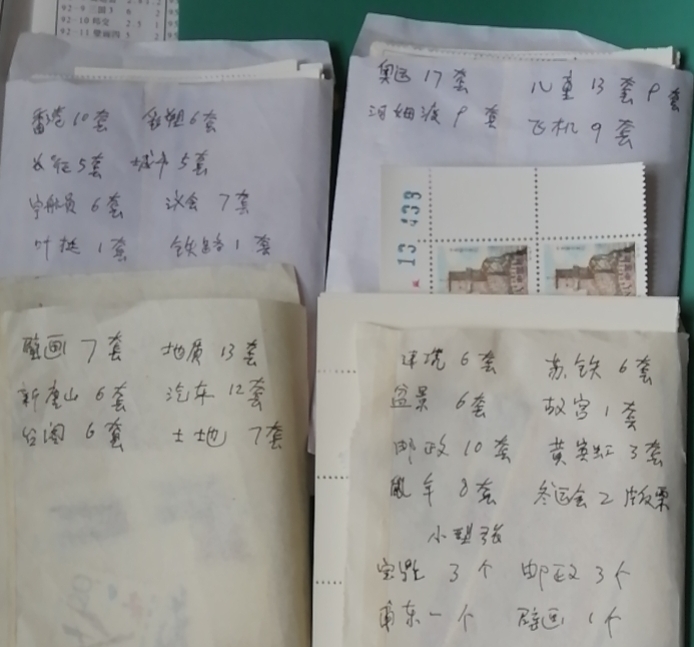 92-9 三国3 6 2 9
92-10 鸣交 2.5 1 9
92-11 壁画四 5 2 95
香港10套 彩塑6套
长征5套 城市5套
宇航员 6套 议会 7套
叶挺 1套 铁路 1套
壁画 7套 地质 13套
新唐山 6套 汽车 12套
台阁 6套 土地 7套
奥运 17套 儿童 13套 9套
河姆渡 9套 飞机 9套
13 439
6套 苏铁 6套
盆景 6套 故宫 1套
邮政 10套 黄宾虹 3套
8套 冬运会 2 版票
小型张
3个 邮政 3个
一个 壁画 1个